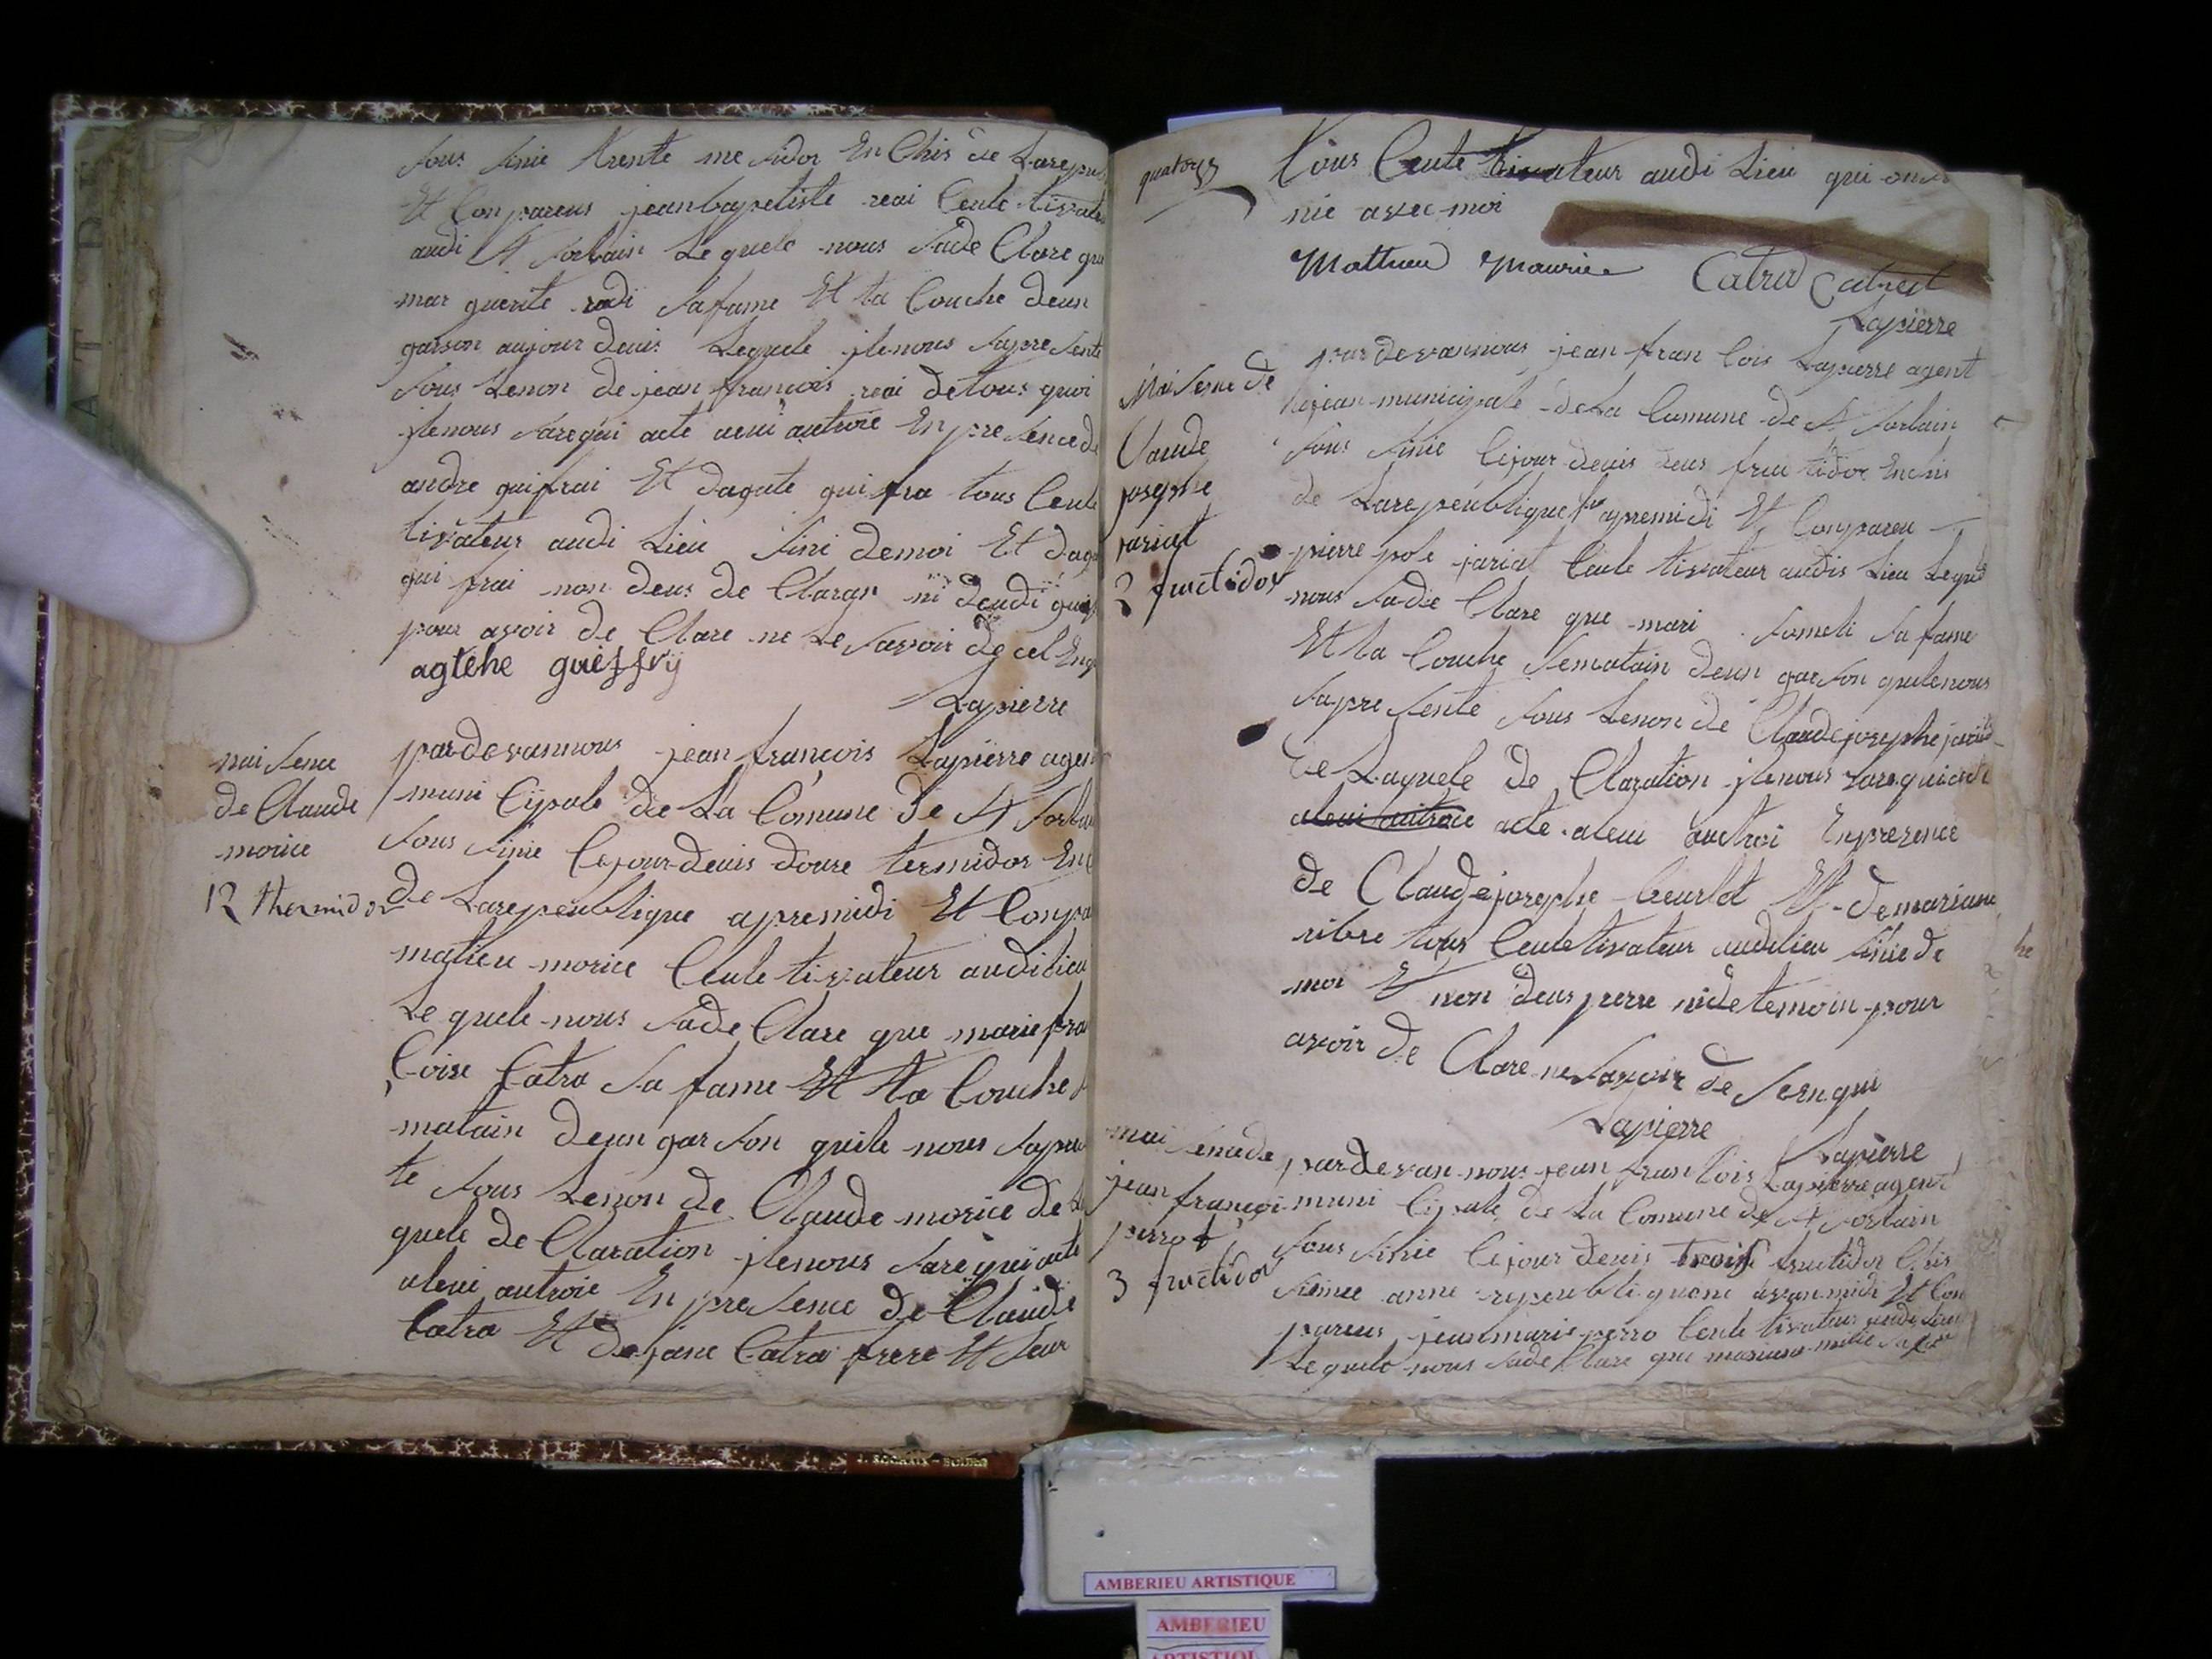 sous sinie trente me sidor En Chis de Larepu
Et Conpareus jeanbapetiste reai Ceule tivate
audi St sorlain Lequele nous sade Clare que
mar guerite rodi sa fame Et ta Couche deun
garson aujour deuis Lequele ilenous sapre sente
sous Lenon de jean francois reai detous quoi
ilenous sarequi acte aeui autroié En pre sence de
andre guifrai Et dagate gui fra tous Ceule
tivateur audi Lieu sini demoi Et daga
gui frai non deus de Clarar ni dendi guif
pour avoir de Clare ne Le savoir de cel Enqu
agtehe guiffrÿ
Lapierre
nai sence
de Claude
morice
12 thermidor
pardevannous jean francois Lapierre agen
muni Cipale de La Comune de St sorlain
sous sinie Cejour deuis doure termidor En C
de Larepeublique apremidi Et Conpa
matieu morice Ceule tivateur audilieu
Le quele nous sade Clare que marie fra
Coise Catra sa fame Et ta Couche s
matain deun gar son quile nous sapre
te sous Lenon de Claude morice de La
quele de Claration ilenous sarequi acte
aleui autroie En pre sence de Claude
Catra Et de jane Catra frere Et seur
quatorze
tous Ceule tivateur audi Lieu qui on si
nie avec moi
Mathieu Maurice Catrad Catrest
Lapierre
Nai sence de
Claude
josephe
jariat
2 fructidor
par devannous jean fran Cois Lapierre agent
municipale de La Comune de St sorlain
sous sinie Cejour deuis deus fruc tidor Enchis
de Larepeublique apremidi Et Conpareu
pierre pole jariat Ceule tivateur audis Lieu Lequel
nous sade Clare que mari someli sa fame
Et ta Couche sematain deun garson quilenous
sapre sente sous Lenon de Claude josephe jariat
de Laquele de Claration ilenous sarequi acte
aleui autroie acte aleui auctroi Enprezence
de Claude josephe beurlot Et demariane
ribre tous Ceule tivateur audilieu sinie de
moi Et non deus perre nide temoin pour
avoir de Clare ne savoir de sern qui
Lapierre Lapierre
nai sence de
jean françoi
perrot
3 fructidor
par devan nous jean fran Cois Lapierre agent
muni Cipale de La Comune de St sorlain
sous sinie Cejour deuis trois fructidor Chis
sieme anne repeubli quene avan midi Et Con
pareus jean marie perro Ceule tivateur audi Lieu
Le quele nous sade Clare que mariane
J. ROCHAIX - BOURG
AMBERIEU ARTISTIQUE
AMBERIEU
ARTISTIQUE